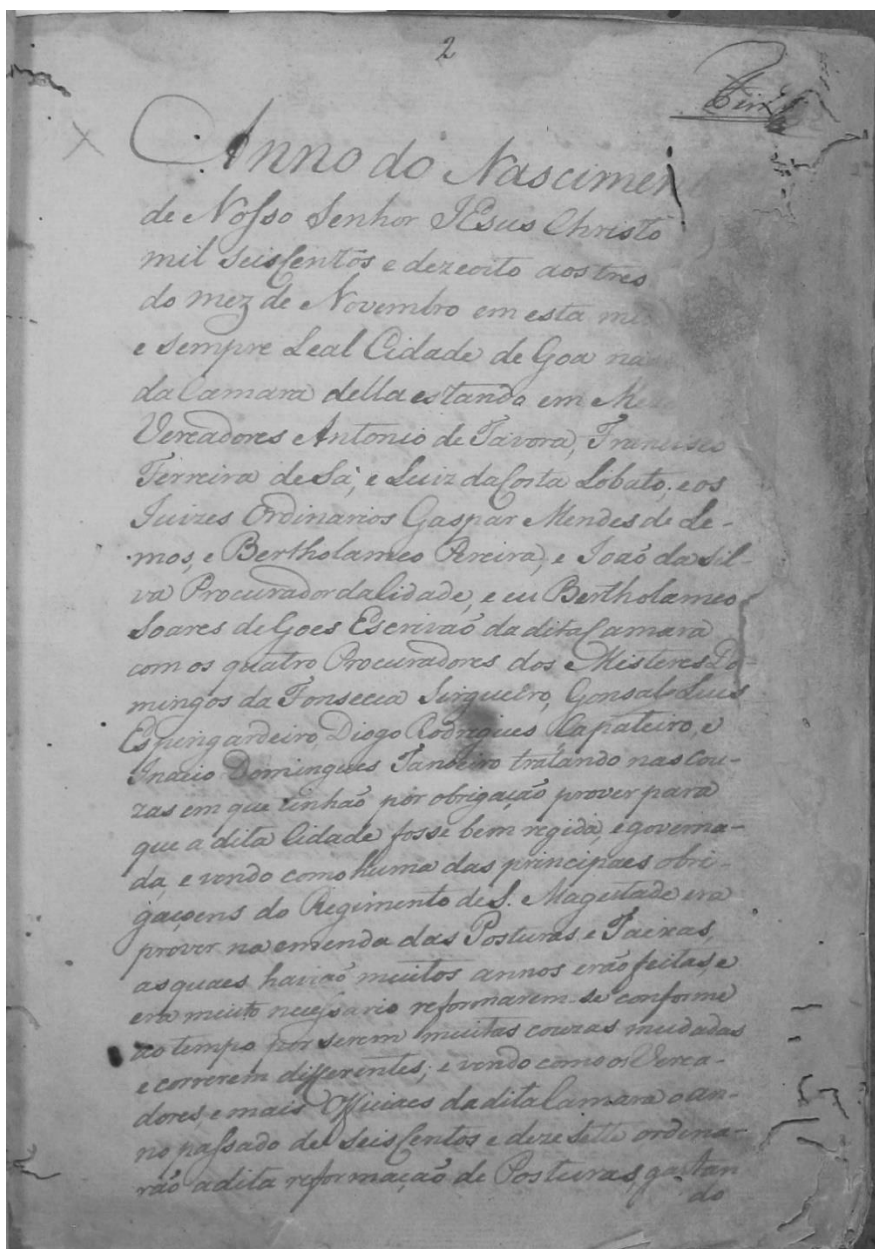 2
Anno do Nascimen
de Nosso Senhor JEsus Christo
mil SeisCentos e dezeoito aos tres
do mez de Novembro em esta
e sempre Leal Cidade de Goa na
da Camara della estando em
Vereadores Antonio de Tavora, Francisco
Ferreira de Sá, e Luiz da Costa Lobato, e os
Juizes Ordinarios Gaspar Mendes de Le-
mos, e Bertholameo Pereira, e João da Sil-
va Procurador da Cidade, e eu Bertholameo
Soares de Goes Escrivão da dita Camara
com os quatro Procuradores dos Misteres Do-
mingos da Fonsecia Sirgueiro, Gonsalo Luis
Espingardeiro, Diogo Rodrigues Çapateiro, e
Inacio Domingues Tanoeiro tratando nas cou-
zas em que tinhão por obrigação prover para
que a dita Cidade fosse bem regida, e governa-
da, e vendo como huma das principaes obri-
gaçoens do Regimento de S. Magestade era
prover na emenda das Posturas e Taixas,
as quaes havião muitos annos erão feitas, e
era muito necessario reformarem-se conforme
ao tempo por serem muitas couzas mudadas
e correrem differentes, e vendo como os Verea-
dores, e mais Officiaes da dita Camara o an-
no passado de SeisCentos e deze sette ordina-
rão a dita reformação de Posturas, gastan
do